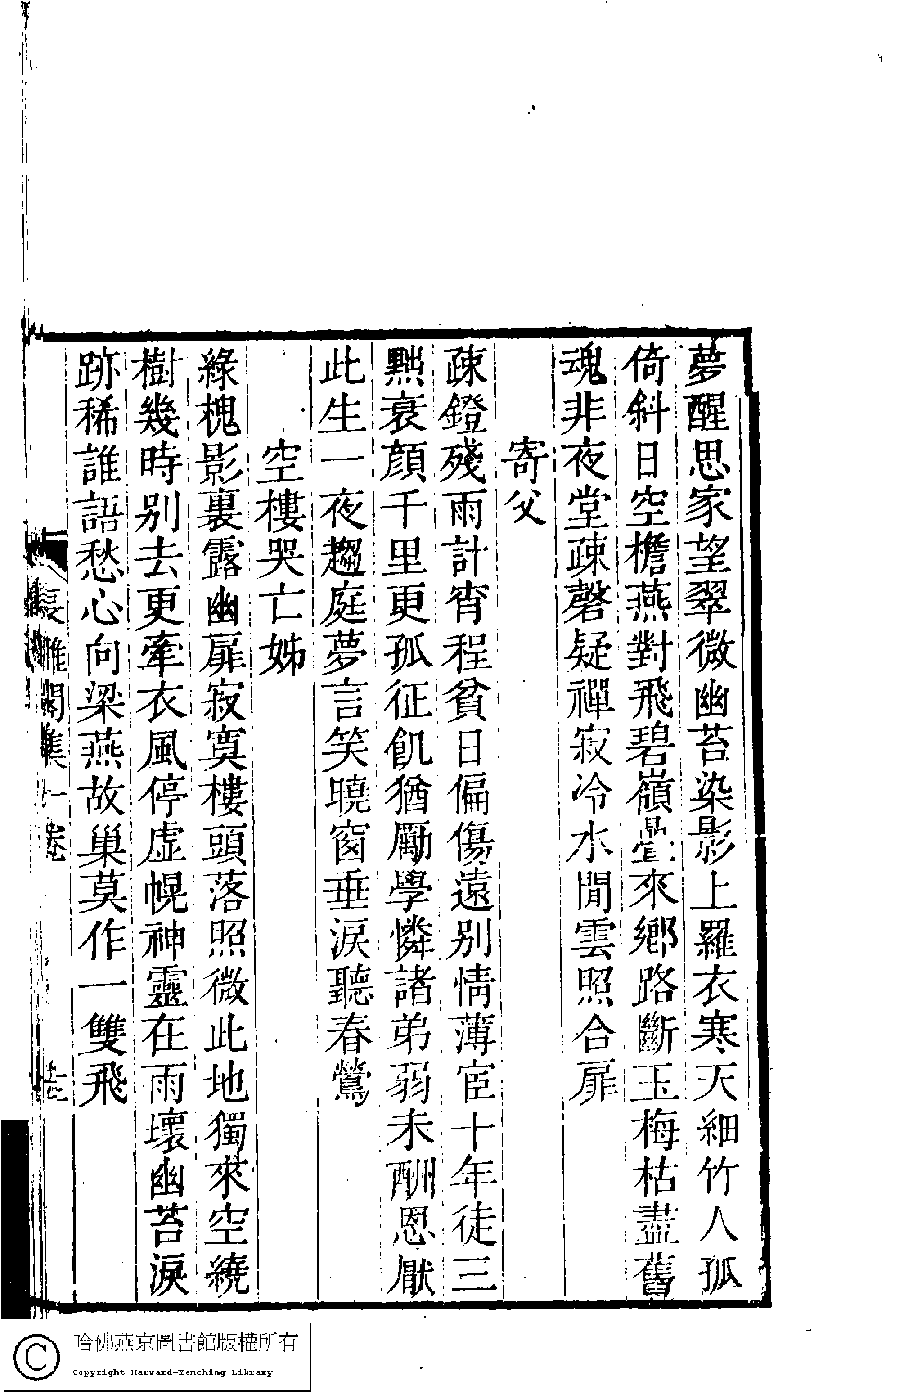 夢醒思家望翠微幽苔染影上羅衣寒天細竹人孤
倚斜日空檐燕對飛碧嶺疊來鄉路斷玉梅枯盡舊
魂非夜堂疎磬疑禪寂冷水閒雲照合扉
寄父
疎鐙殘雨計宵程貧日偏傷遠別情薄宦十年徒三
黜衰顏千里更孤征飢猶勵學憐諸弟弱未酬恩厭
此生一夜趨庭夢言笑曉窗垂淚聽春鶯
空樓哭亡姊
綠槐影裏露幽扉寂寞樓頭落照微此地獨來空繞
樹幾時別去更牽衣風停虛幌神靈在雨壞幽苔淚
跡稀誰語愁心向梁燕故巢莫作一雙飛
雅閣集一卷
哈佛燕京圖書館版權所有
Copyright Harvard-Yenching Library